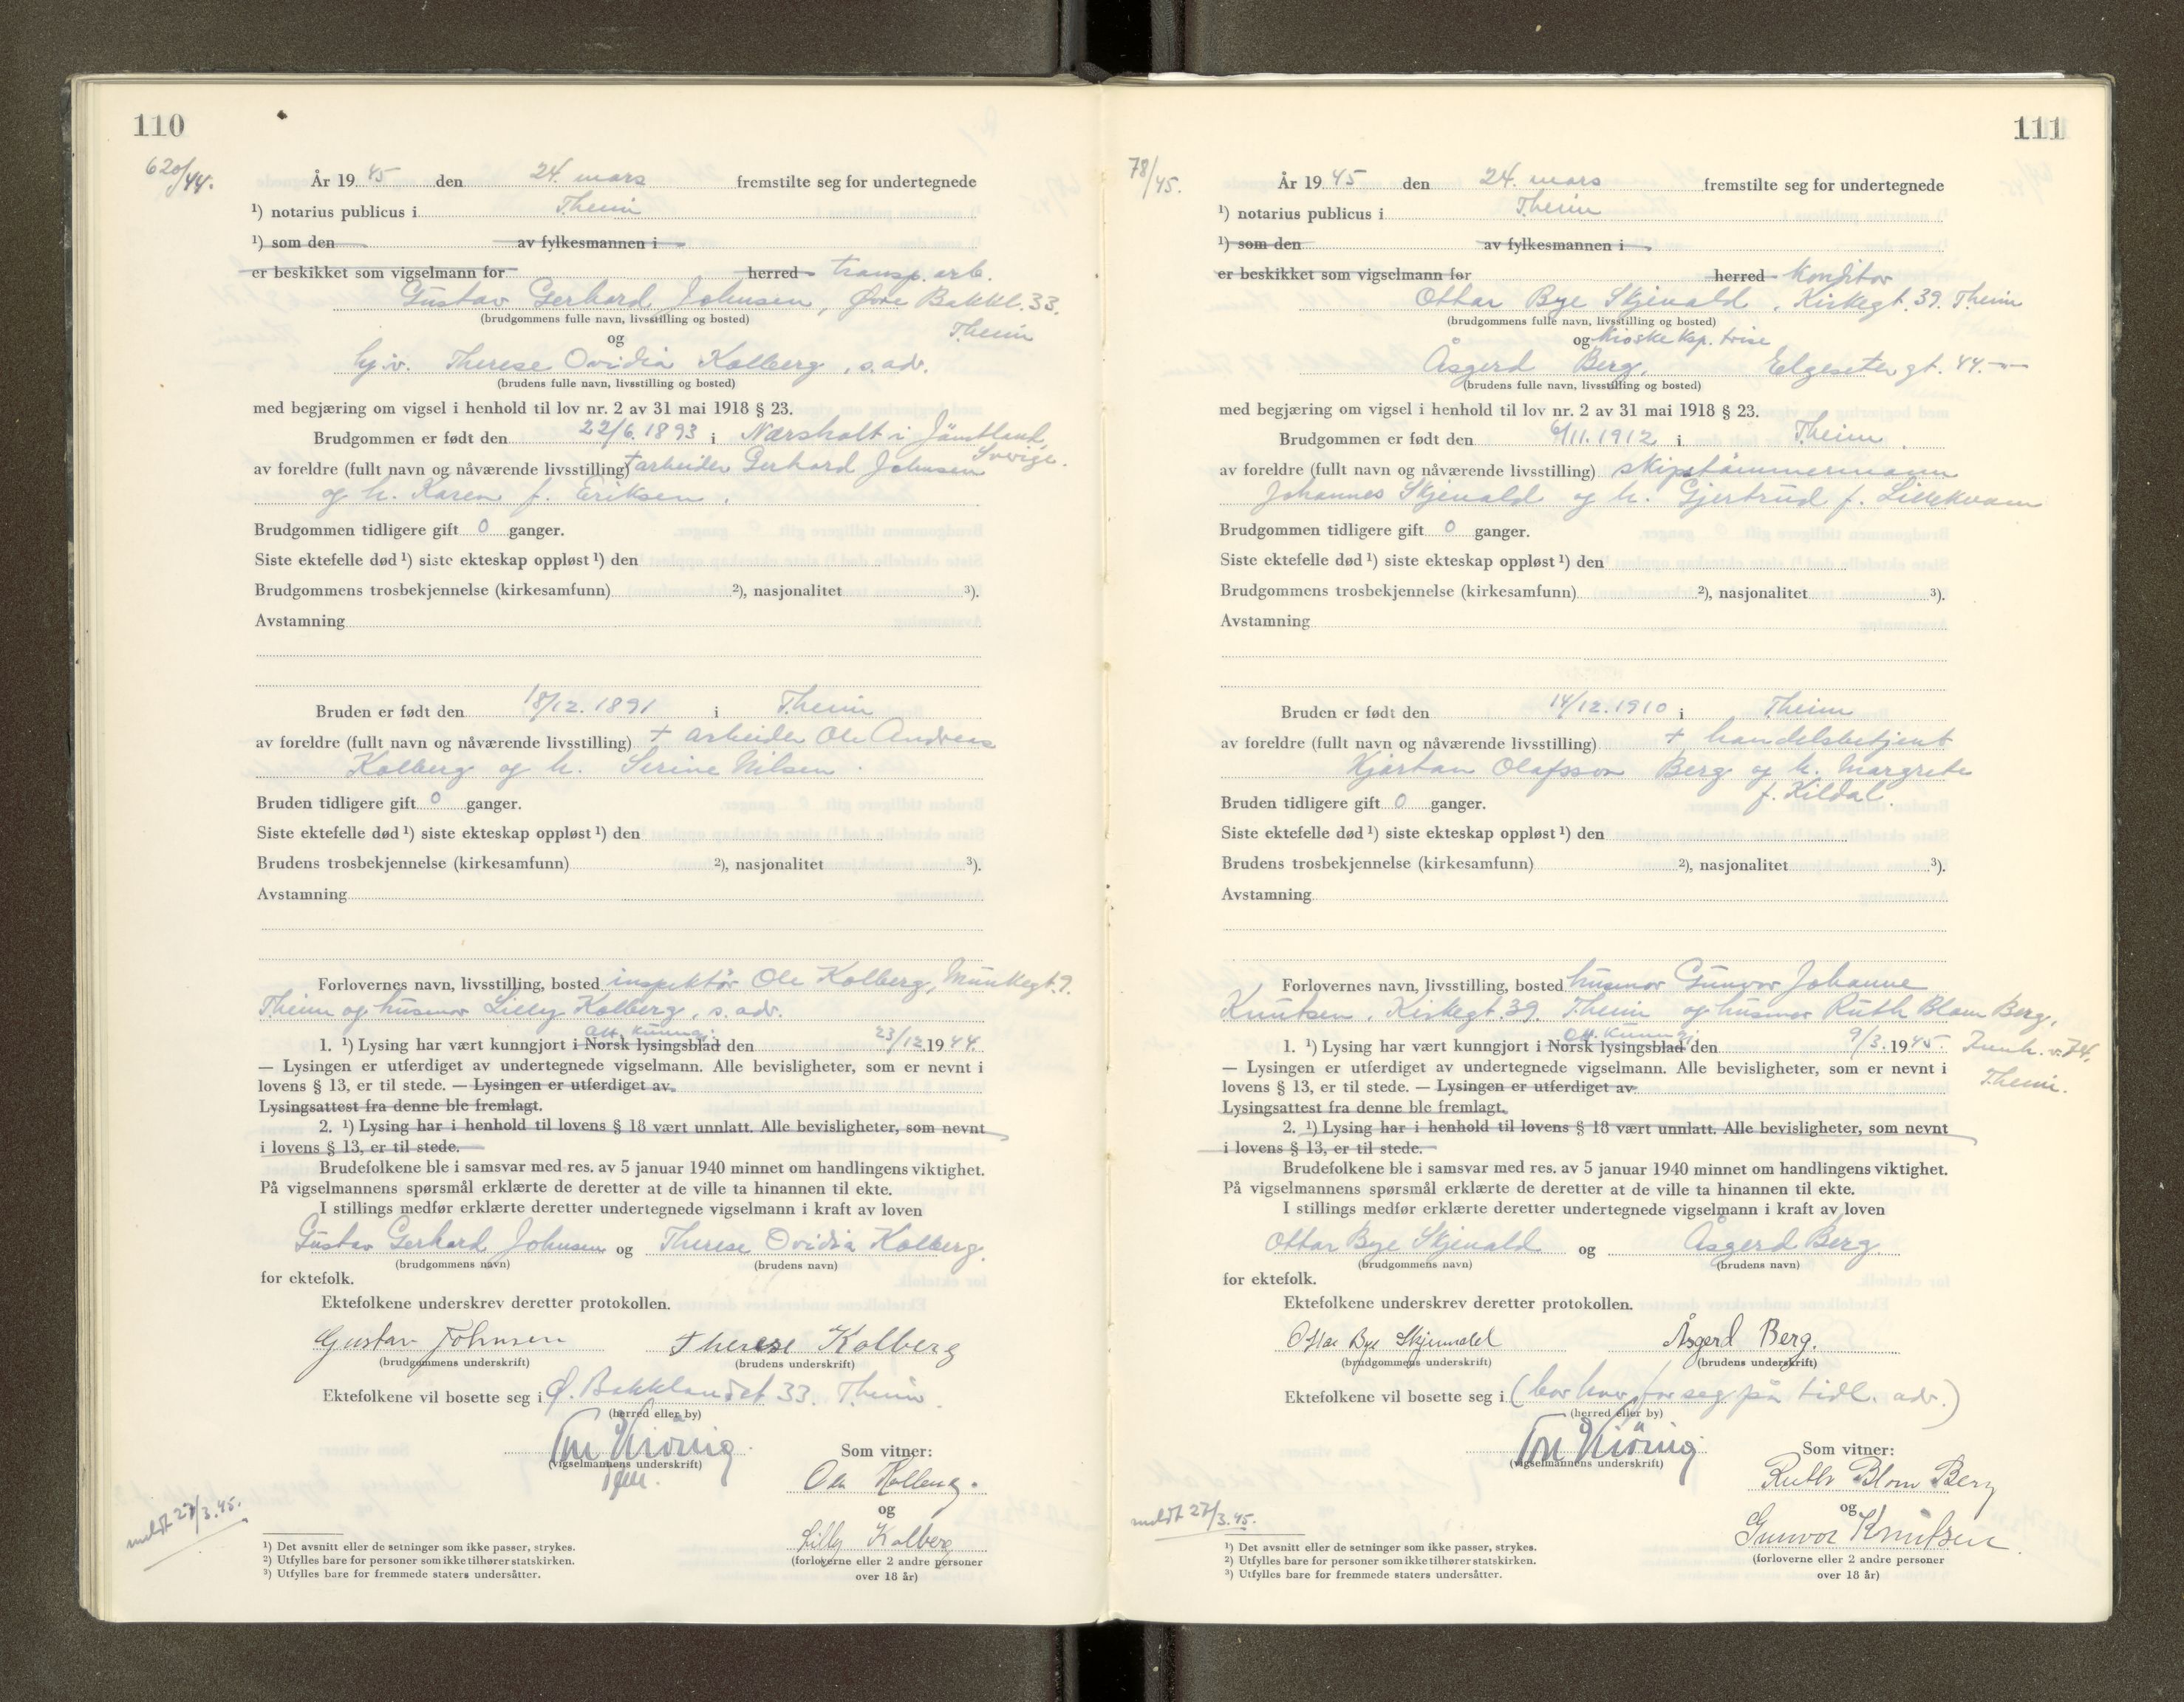 110
620/44.
År 19 45 den 24. mars fremstilte seg for undertegnede
¹) notarius publicus i T.heim
¹) som den av fylkesmannen i
er beskikket som vigselmann for herred transp. arb.
Gustav Gerhard Johnsen, Øvre Bakkl. 33.
(brudgommens fulle navn, livsstilling og bosted) T.heim
og
hj.v. Therese Ovidia Kolberg, s. adr.
(brudens fulle navn, livsstilling og bosted)
med begjæring om vigsel i henhold til lov nr. 2 av 31 mai 1918 § 23.
Brudgommen er født den 22/6. 1893 i Nærsholt i Jämtland, Sverige.
av foreldre (fullt navn og nåværende livsstilling) + arbeider Gerhard Johnsen
og h. Karen f. Eriksen.
Brudgommen tidligere gift 0 ganger.
Siste ektefelle død ¹) siste ekteskap oppløst ¹) den
Brudgommens trosbekjennelse (kirkesamfunn) ²), nasjonalitet ³).
Avstamning
Bruden er født den 18/12. 1891 i T.heim
av foreldre (fullt navn og nåværende livsstilling) + arbeider Ole Andreas
Kolberg og h. Serine Nilsen.
Bruden tidligere gift 0 ganger.
Siste ektefelle død ¹) siste ekteskap oppløst ¹) den
Brudens trosbekjennelse (kirkesamfunn) ²), nasjonalitet ³).
Avstamning
Forlovernes navn, livsstilling, bosted inspektör Ole Kolberg, Munkegt.
T.heim og husmor Lilly Kolberg, s. adr.
Off. kunngj.
1. ¹) Lysing har vært kunngjort i Norsk lysingsblad den 23/12 1944.
— Lysingen er utferdiget av undertegnede vigselmann. Alle bevisligheter, som er nevnt i
lovens § 13, er til stede. — Lysingen er utferdiget av
Lysingsattest fra denne ble fremlagt.
2. ¹) Lysing har i henhold til lovens § 18 vært unnlatt. Alle bevisligheter, som nevnt
i lovens § 13, er til stede.
Brudefolkene ble i samsvar med res. av 5 januar 1940 minnet om handlingens viktighet.
På vigselmannens spørsmål erklærte de deretter at de ville ta hinannen til ekte.
I stillings medfør erklærte deretter undertegnede vigselmann i kraft av loven
Gustav Gerhard Johnsen og Therese Ovidia Kolberg.
(brudgommens navn) (brudens navn)
for ektefolk.
Ektefolkene underskrev deretter protokollen.
Gustav Johnsen Therese Kolberg
(brudgommens underskrift) (brudens underskrift)
Ektefolkene vil bosette seg i Ø. Bakklandet 33. T.heim.
(herred eller by)
(vigselmannens underskrift)
Som vitner:
Ole Kolberg.
og
Lilly Kolberg
(forloverne eller 2 andre personer
over 18 år)
meldt 27/3.45.
¹) Det avsnitt eller de setninger som ikke passer, strykes.
²) Utfylles bare for personer som ikke tilhører statskirken.
³) Utfylles bare for fremmede staters undersåtter.
111
78/45.
År 19 45 den 24. mars fremstilte seg for undertegnede
¹) notarius publicus i T.heim
¹) som den av fylkesmannen i
er beskikket som vigselmann for herred Konditor
Ottar Bye Skjenald, Kirkegt. 39. T.heim
(brudgommens fulle navn, livsstilling og bosted)
og kioske ksp. trise
Åsgerd Berg, Elgeseter gt. 44. —"—
(brudens fulle navn, livsstilling og bosted)
med begjæring om vigsel i henhold til lov nr. 2 av 31 mai 1918 § 23.
Brudgommen er født den 6/11. 1912 i T.heim.
av foreldre (fullt navn og nåværende livsstilling) skipstömmermann
Johannes Skjenald og h. Gjertrud f. Lillekvam
Brudgommen tidligere gift 0 ganger.
Siste ektefelle død ¹) siste ekteskap oppløst ¹) den
Brudgommens trosbekjennelse (kirkesamfunn) ²), nasjonalitet ³).
Avstamning
Bruden er født den 14/12. 1910 i T.heim
av foreldre (fullt navn og nåværende livsstilling) + handelsbetjent
Kjartan Olafsson Berg og h. Margrete
f. Kildal.
Bruden tidligere gift 0 ganger.
Siste ektefelle død ¹) siste ekteskap oppløst ¹) den
Brudens trosbekjennelse (kirkesamfunn) ²), nasjonalitet ³).
Avstamning
Forlovernes navn, livsstilling, bosted husmor Gunvor Johanne
Knutsen, Kirkegt. 39. T.heim og husmor Ruth Blom Berg,
Off. kunngj.
1. ¹) Lysing har vært kunngjort i Norsk lysingsblad den 9/3. 1945. v. 74, T.heim.
— Lysingen er utferdiget av undertegnede vigselmann. Alle bevisligheter, som er nevnt i
lovens § 13, er til stede. — Lysingen er utferdiget av
Lysingsattest fra denne ble fremlagt.
2. ¹) Lysing har i henhold til lovens § 18 vært unnlatt. Alle bevisligheter, som nevnt
i lovens § 13, er til stede.
Brudefolkene ble i samsvar med res. av 5 januar 1940 minnet om handlingens viktighet.
På vigselmannens spørsmål erklærte de deretter at de ville ta hinannen til ekte.
I stillings medfør erklærte deretter undertegnede vigselmann i kraft av loven
Ottar Bye Skjenald og Åsgerd Berg
(brudgommens navn) (brudens navn)
for ektefolk.
Ektefolkene underskrev deretter protokollen.
Ottar Bye Skjenald Åsgerd Berg.
(brudgommens underskrift) (brudens underskrift)
Ektefolkene vil bosette seg i (bor hver for seg på tidl. adr.)
(herred eller by)
(vigselmannens underskrift)
Som vitner:
Ruth Blom Berg
og
Gunvor Knutsen
(forloverne eller 2 andre personer
over 18 år)
meldt 27/3.45.
¹) Det avsnitt eller de setninger som ikke passer, strykes.
²) Utfylles bare for personer som ikke tilhører statskirken.
³) Utfylles bare for fremmede staters undersåtter.